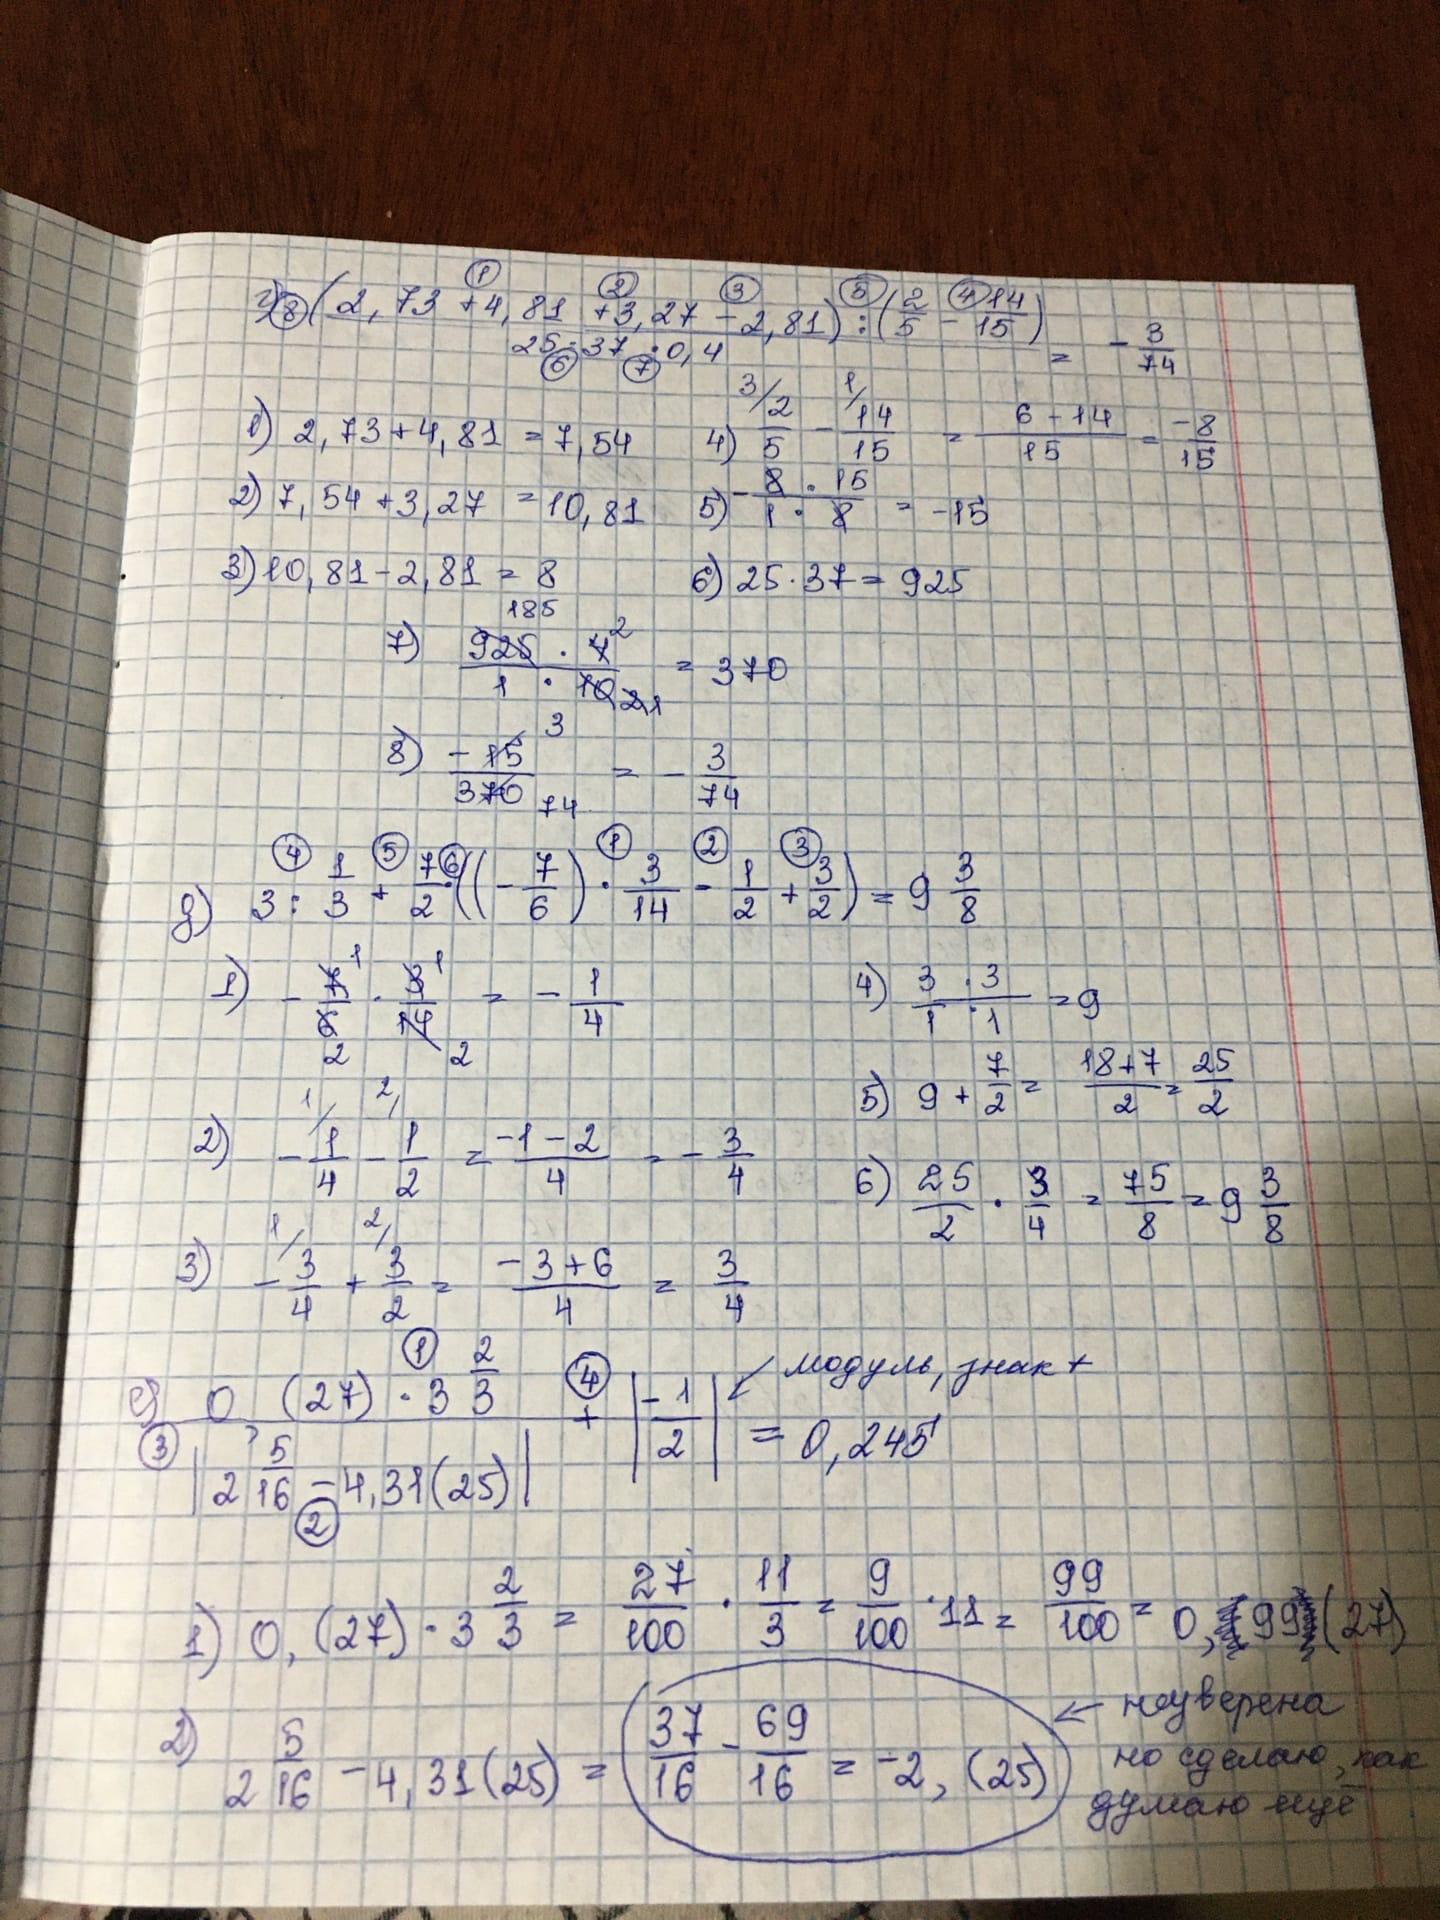 г) (2,73 + 4,81 + 3,27 - 2,81) : (2/5 - 14/15)
25 · 37 · 0,4 = -3/74
1) 2,73 + 4,81 = 7,54
2) 7,54 + 3,27 = 10,81
3) 10,81 - 2,81 = 8
4) 2/5 - 14/15 = (6 - 14)/15 = -8/15
5) -(8 · 15)/(1 · 8) = -15
6) 25 · 37 = 925
7) (925 · 4)/(1 · 10) = 370
8) -15/370 = -3/74
д) 3 : 1/3 + 7/2 · ((-7/6) · 3/14 - 1/2 + 3/2) = 9 3/8
1) -7/6 · 3/14 = -1/4
2) -1/4 - 1/2 = (-1 - 2)/4 = -3/4
3) -3/4 + 3/2 = (-3 + 6)/4 = 3/4
4) (3 · 3)/(1 · 1) = 9
5) 9 + 7/2 = (18 + 7)/2 = 25/2
6) 25/2 · 3/4 = 75/8 = 9 3/8
е) 0,(27) · 3 2/3 + |-1/2| = 0,245
модуль, знак +
|2 5/16 - 4,31(25)|
1) 0,(27) · 3 2/3 = 27/100 · 11/3 = 9/100 · 11 = 99/100 = 0,99(27)
2) 2 5/16 - 4,31(25) = 37/16 - 69/16 = -2,(25)
неуверена
но сделаю, как
думаю ещё